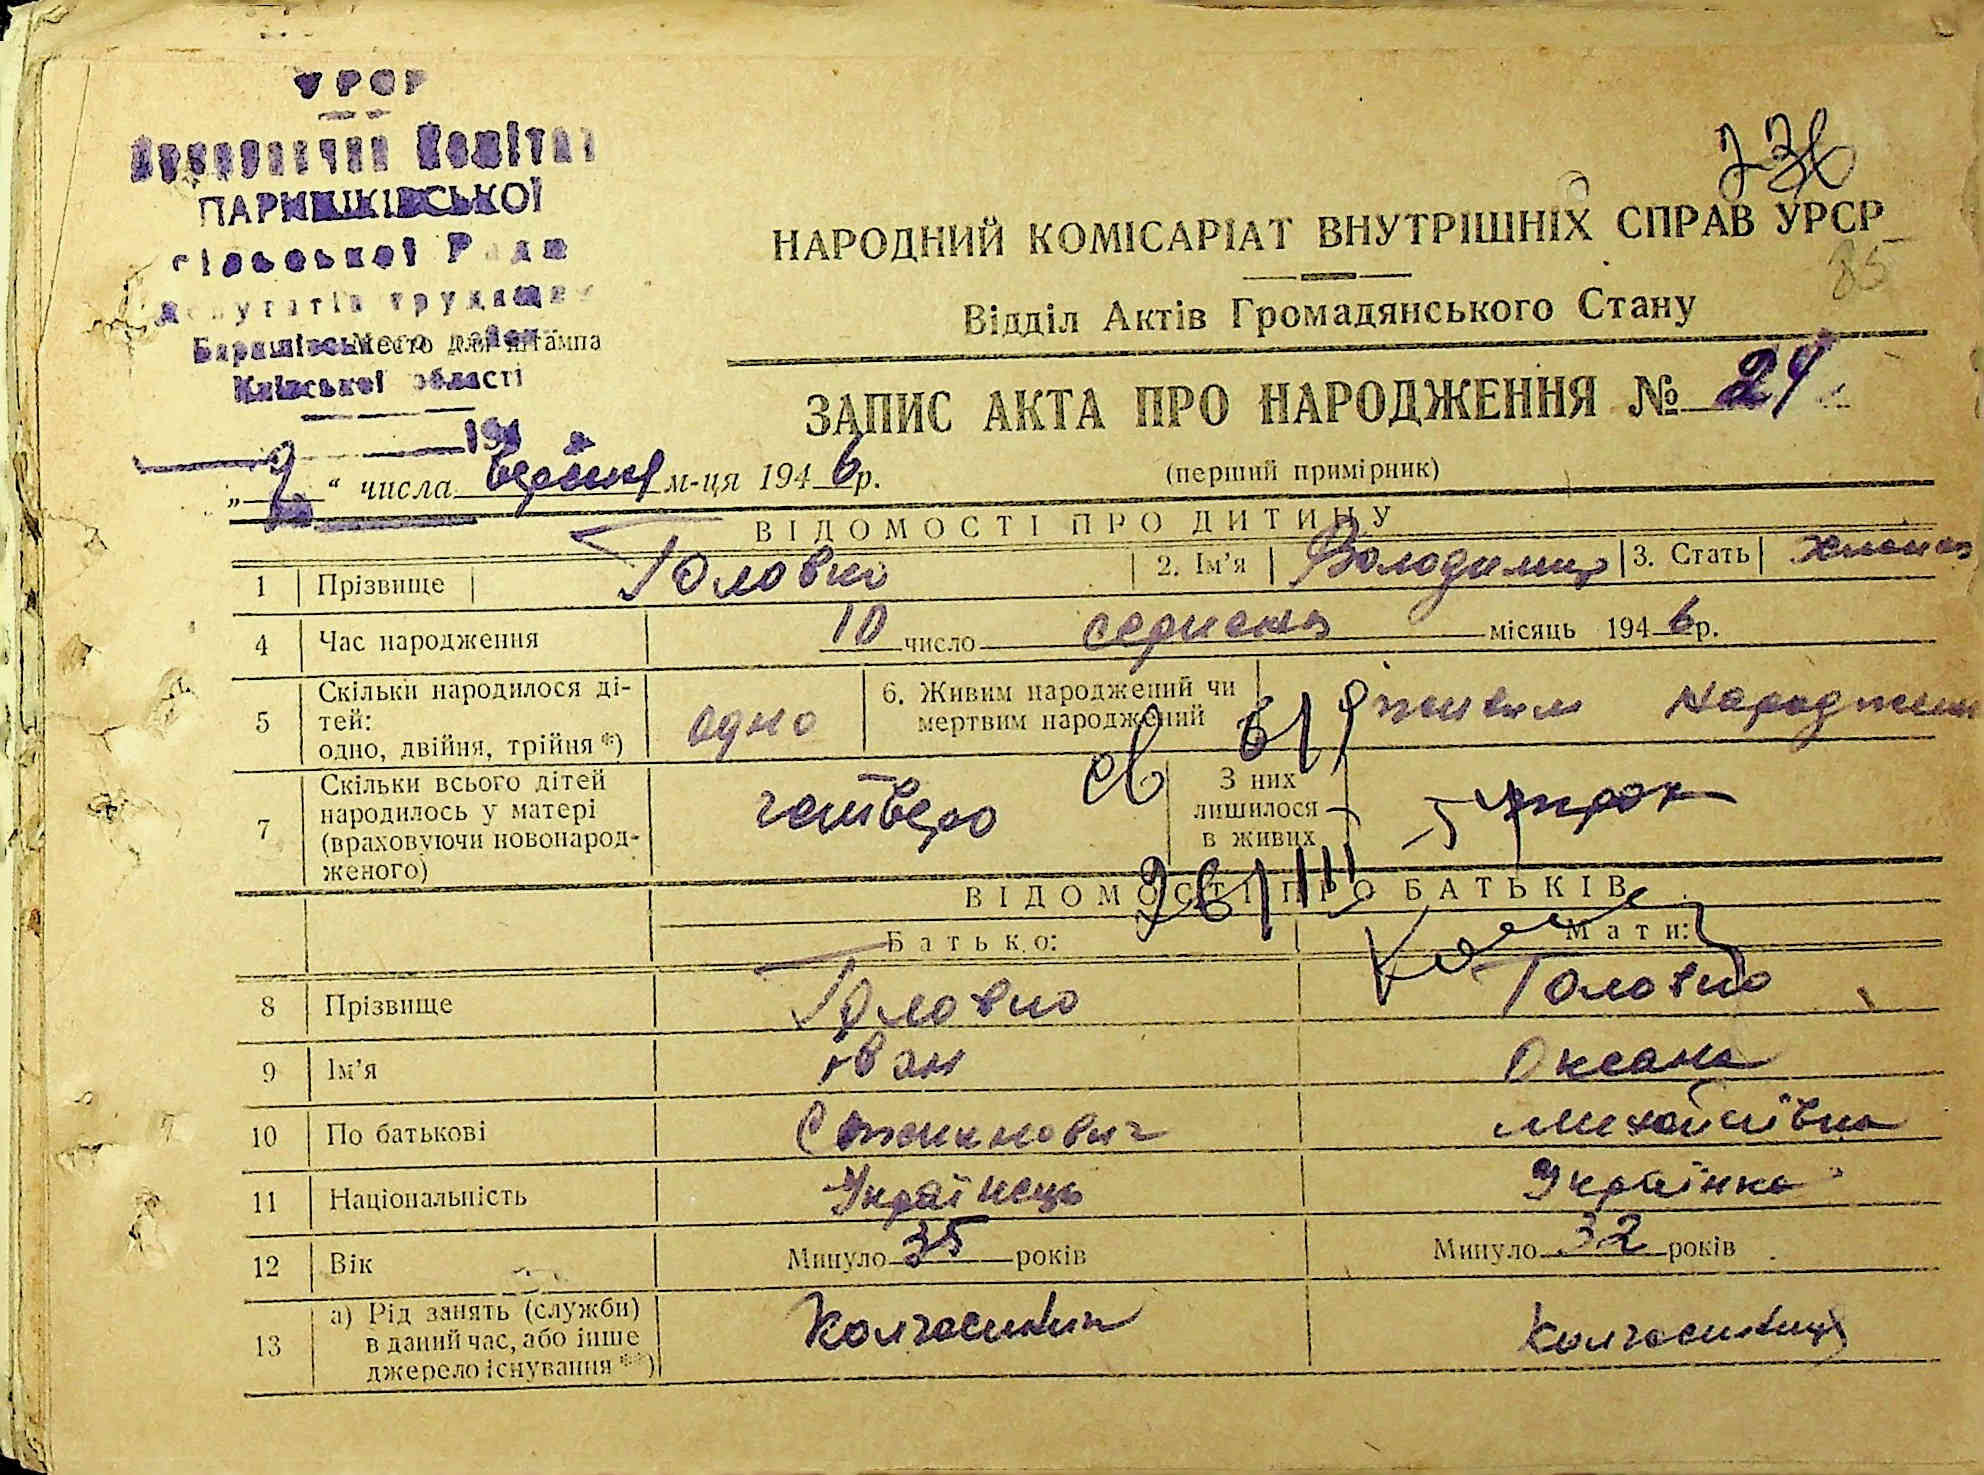 УРСР
Виконавчий Комітет
ПАРИШКІВСЬКОЇ
сільської Ради
депутатів трудящих
Баришівського району
Место для штампа
Київської області
194
„ 2 “ числа вересня м-ця 1946 р.
85
НАРОДНИЙ КОМІСАРІАТ ВНУТРІШНІХ СПРАВ УРСР
Відділ Актів Громадянського Стану
ЗАПИС АКТА ПРО НАРОДЖЕННЯ № 24
(перший примірник)
ВІДОМОСТІ ПРО ДИТИНУ
1 Прізвище Головко 2. Ім’я Володимир 3. Стать
4 Час народження 10 число серпня місяць 1946 р.
5 Скільки народилося ді-
тей:
одно, двійня, трійня *) одно
6. Живим народжений чи
мертвим народжений живим народжен
7 Скільки всього дітей
народилось у матері
(враховуючи новонарод-
женого) четверо
З них
лишилося
в живих
ВІДОМОСТІ ПРО БАТЬКІВ
Батько: Мати:
8 Прізвище Головко Головко
9 Ім’я Іван Оксана
10 По батькові Михайлівна
11 Національність Українець Українка
12 Вік Минуло 35 років Минуло 32 років
13 а) Рід занять (служби)
в даний час, або інше
джерело існування **) Колгоспник Колгоспниця